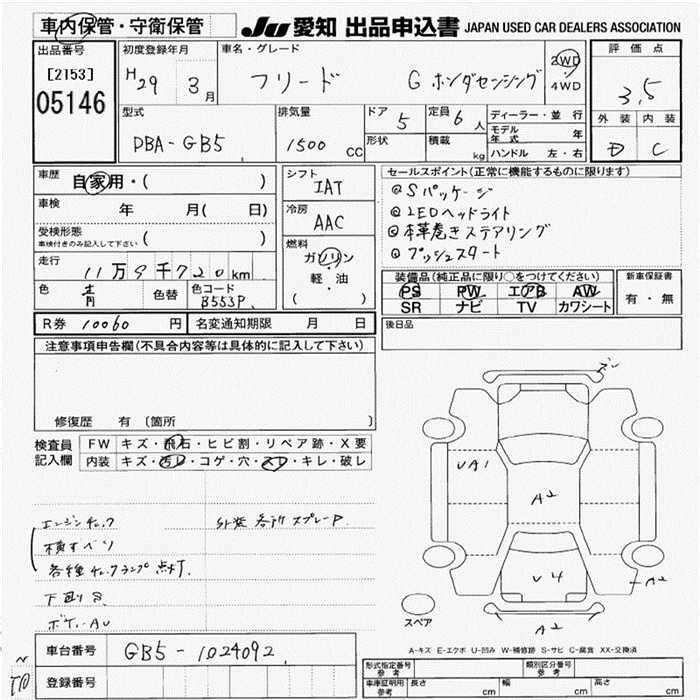 車内保管・守衛保管 JU 愛知 出品申込書 JAPAN USED CAR DEALERS ASSOCIATION
出品番号 初度登録年月 車名・グレード 評価点
[2153] H29 3月 フリード G ホンダセンシング 2WD 4WD 3.5
05146
型式 排気量 ドア 5 定員 6人 ディーラー・並行 外装 内装
DBA-GB5 1500 CC 形状 積載 kg モデル年式 年 D C
ハンドル 左・右
車歴 自家用・( ) シフト IAT セールスポイント(正常に機能するものに限ります)
車検 年 月( 日) 冷房 AAC @Sパッケージ
受検形態 ( ) @LEDヘッドライト
車検付きのみ記入して下さい 燃料 @本革巻きステアリング
走行 11万9千720km ガソリン @プッシュスタート
色 青 色替 色コード B553P 軽・油 ( )
装備品(純正品に限り○をつけてください) 新車保証書
PS PW エアB AW 有・無
SR ナビ TV カワシート
R券 10060円 名変通知期限 月 日 後日品
注意事項申告欄(不具合内容等は具体的に記入して下さい)
修復歴 有 〔箇所 〕
検査員記入欄 FW キズ・飛石・ヒビ割・リペア跡・X要
内装 キズ・汚レ・コゲ・穴・スレ・キレ・破レ
エンジンチェック 外装 各所 スプレーP
横すべり
各種チェックランプ点灯
下廻りS
ボディAU
UA1 A2 V4 A2 A2
スペア
A-キズ E-エクボ U-凹み W-補修跡 S-サビ C-腐食 XX-交換済
車台番号 GB5-1024092
登録番号
形式指定番号 参考 類別区分番号 参考
車庫証明用 参考 長さ cm 幅 cm 高さ cm